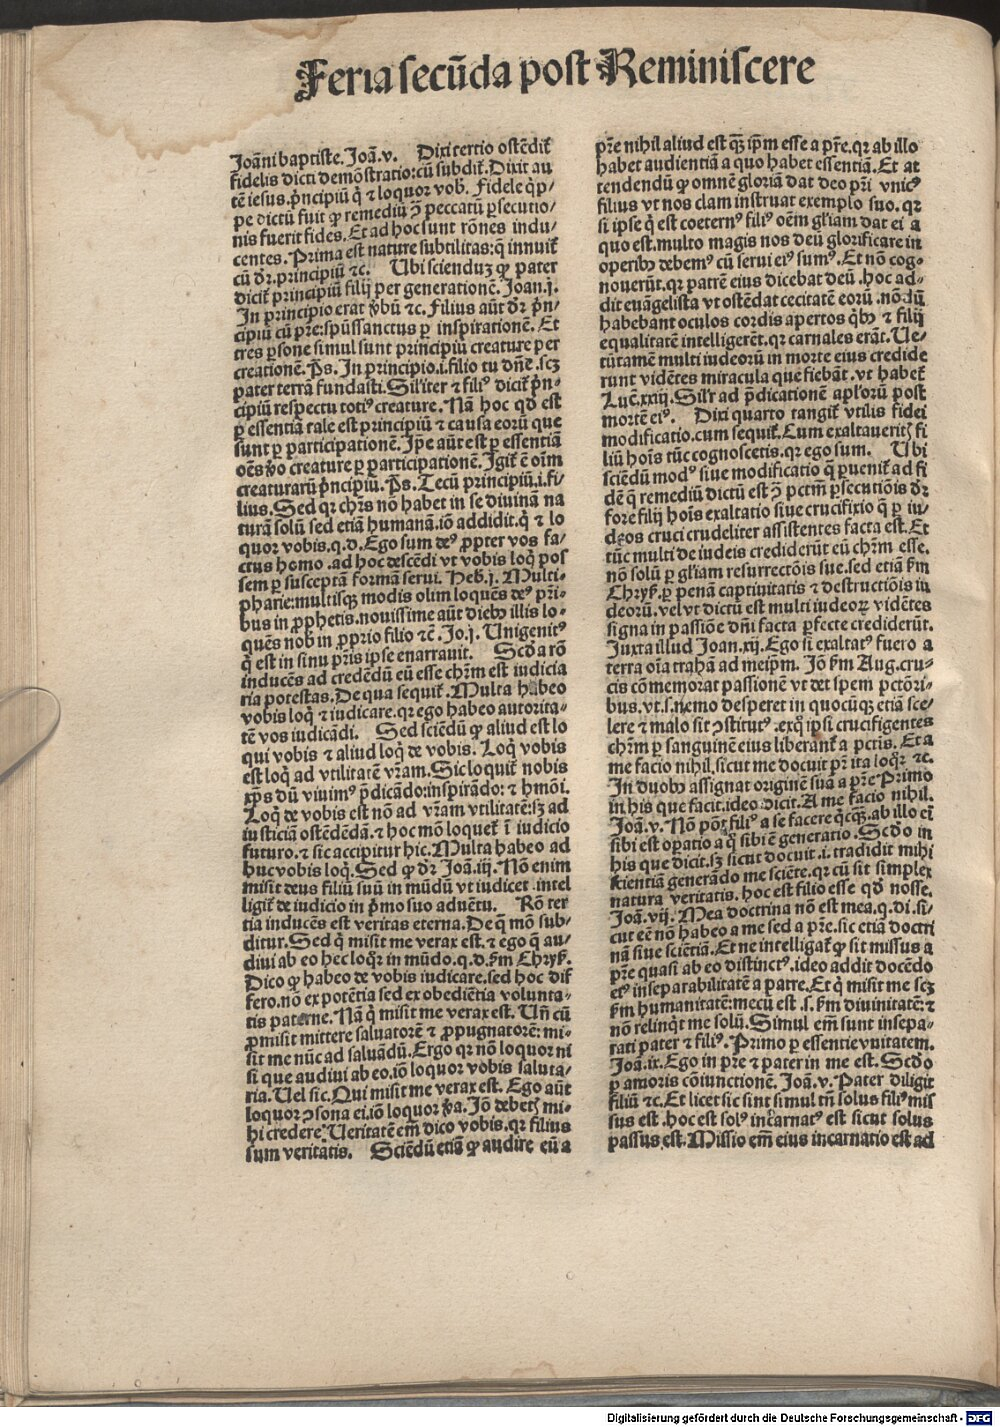 Feria secūda post Reminiscere
Joāni baptiste. Joā. v. Dixi tertio ostēdit̄
fidelis dicti demōstratio: cū subdit̄. Dixit au
tē iesus. p̄ncipiū q̄ ⁊ loquor vob. Fidele q̄p⸗
pe dictū fuit ꝙ remediū ꝯ̄ peccatū ꝑsecutio⸗
nis fuerit fides. Et ad hoc sunt rōnes indu⸗
centes. Prima est nature subtilitas: q̄ innuit̄
cū dr̄. principiū ⁊c. Ubi scienduꝫ ꝙ pater
dicit̄ principiū filij per generationē. Joan. j.
In principio erat v̄bū ⁊c. Filius aūt dr̄ p̄n⸗
cipiū cū pr̄e: spūssanctus ꝑ inspirationē. Et
tres ꝑsone simul sunt principiū creature per
creationē. Ps̄. In principio .i. filio tu dn̄e .scꝫ
pater terrā fundasti. Silr̄iter ⁊ filiꝰ dicit̄ p̄n⸗
cipiū respectu totiꝰ creature. Nā hoc qd̄ est
ꝑ essentiā tale est principiū ⁊ causa eorū que
sunt ꝑ participationē. Jpē aūt est ꝑ essentiā
oēs v̄o creature ꝑ participationē. Jgit̄ ē oīm
creaturarū p̄ncipiū. Ps̄. Tecū principiū .i. fi⸗
lius. Sed qꝛ chr̄s nō habet in se diuinā na
turā solū sed etiā humanā. iō addidit. q̄ ⁊ lo
quor vobis. q.d. Ego sum deꝰ ꝓpter vos fa⸗
ctus homo .ad hoc descēdi vt vobis loq̄ pos
sem ꝑ susceptā formā serui. Heb̄. j. Multi⸗
pharie: multisqꝫ modis olim loquēs deꝰ pr̄i⸗
bus in ꝓphetis. nouissime aūt dieb illis lo⸗
quēs nob in ꝓprio filio ⁊cē. Jo. j. Unigenitꝰ
q̄ est in sinu pr̄is ipse enarrauit. Scd̄a rō
inducēs ad credēdū eū esse chr̄m est iudicia
ria potestas. De qua sequit̄. Multa habeo
vobis loq̄ ⁊ iudicare. qꝛ ego habeo autorita⸗
tē vos iudicādi. Sed sciēdū ꝙ aliud est lo
qui vobis ⁊ aliud loq̄ de vobis. Loq̄ vobis
est loq̄ ad vtilitatē vr̄am. Sic loquit̄ nobis
xp̄s dū viuimꝰ p̄dicādo: inspirādo: ⁊ hmōi.
Loq̄ de vobis est nō ad vr̄am vtilitatē: sꝫ ad
iusticiā ostēdēdā. ⁊ hoc mō loquet̄ ī iudicio
futuro. ⁊ sic accipitur hic. Multa habeo ad
huc vobis loq̄. Sed ꝙ dr̄ Joā. iij. Nō enim
misit deus filiū suū in mūdū vt iudicet .intel
ligit̄ de iudicio in p̄mo suo aduētu. Rō ter
tia inducēs est veritas eterna. De q̄ mō sub⸗
ditur. Sed q̄ misit me verax est. ⁊ ego q̄ au⸗
diui ab eo hec loq̄r in mūdo. q.d. s̄m Chrys̄.
Dico ꝙ habeo de vobis iudicare. sed hoc dif
fero. nō ex potētia sed ex obediētia volunta⸗
tis paterne. Nā q̄ misit me verax est. Un̄ cū
ꝓmisit mittere saluatorē ⁊ ꝓpugnatorē: mi⸗
sit me nūc ad saluādū. Ergo qꝛ nō loquor ni
si que audiui ab eo. iō loquor vobis saluta⸗
ria. Uel sic. Qui misit me verax est. Ego aūt
loquor ꝯsona ei. iō loquor v̄a. Jō debetꝭ mi⸗
hi credere. Ueritatē em̄ dico vobis. qꝛ filius
sum veritatis. Sciēdū etiā ꝙ audire eū a
pr̄e nihil aliud est qꝫ ip̄m esse a pr̄e. qꝛ ab illo
habet audientiā a quo habet essentiā. Et at
tendendū ꝙ omnē gloriā dat deo pr̄i vnicꝰ
filius vt nos clam instruat exemplo suo. qꝛ
si ipse q̄ est coeternꝰ filiꝰ oēm gl̄iam dat ei a
quo est. multo magis nos deū glorificare in
operibꝫ debemꝰ cū serui eiꝰ sumꝰ. Et nō cog⸗
nouerūt. qꝛ patrē eius dicebat deū. hoc ad⸗
dit euāgelista vt ostēdat cecitatē eorū. nō dū
habebant oculos cordis apertos q̄bꝫ ⁊ filij
equalitatē intelligerēt. qꝛ carnales erāt. Ue⸗
rūtamē multi iudeorū in morte eius credide
runt vidētes miracula que fiebāt. vt habet̄
Luc̄. xxiij. Silr̄ ad p̄dicationē apl̄orū post
mortē eiꝰ. Dixi quarto tangit̄ vtilis fidei
modificatio. cum sequit̄. Cum exaltaueritꝭ fi
liū hoīs tūc cognoscetis. qꝛ ego sum. Ubi
sciēdū modꝰ siue modificatio q̄ ꝑuenit̄ ad fi
dē q̄ remediū dictū est ꝯ̄ pctm̄ ꝑsecutiōis dr̄
fore filij hoīs exaltatio siue crucifixio q̄ ꝑ iu⸗
deos cruci crudeliter assistentes facta est. Et
tūc multi de iudeis crediderūt eū chr̄m esse.
nō solū ꝑ gl̄iam resurrectōis sue. sed etiā s̄m
Chrys̄. ꝑ penā captiuitatis ⁊ destructiōis iu
deorū. vel vt dictū est multi iudeoꝝ vidētes
signa in passiōe dn̄i facta ꝑfecte crediderūt.
Juxta illud Joan. xij. Ego si exaltatꝰ fuero a
terra oīa trahā ad meip̄m. Jō s̄m Aug. cru⸗
cis cōmemorat passionē vt det spem pctōri⸗
bus. vt .s. nemo desperet in quocūqꝫ etiā sce⸗
lere ⁊ malo sit ꝯstitutꝰ. exq̄ ipsi crucifigentes
chr̄m ꝑ sanguinē eius liberant̄ a pctīs. Et a
me facio nihil. sicut me docuit pr̄ ita loq̄r ⁊c.
In duobꝫ assignat originē suā a pr̄e Primo
in his que facit. ideo dicit. A me facio nihil.
Joā. v. Nō pōt filiꝰ a se facere q̄cqꝫ. ab illo ei
sibi est oꝑatio a q̄ sibi ē generatio. Scd̄o in
his que dicit. sꝫ sicut docuit .i. tradidit mihi
scientiā generādo me sciēte. qꝛ cū sit simplex
natura veritatis. hoc est filio esse qd̄ nosse.
Joā. vij. Mea doctrina nō est mea. q.di. si⸗
cut eē nō habeo a me sed a pr̄e. sic etiā doctri
nā siue sciētiā. Et ne intelligat̄ ꝙ sit missus a
pr̄e quasi ab eo distinctꝰ. ideo addit docēdo
eiꝰ inseparabilitatē a patre. Et q̄ misit me scꝫ
s̄m humanitatē: mecū est .s. s̄m diuinitatē: ⁊
nō relinq̄t me solū. Simul em̄ sunt insepa⸗
rati pater ⁊ filiꝰ. Primo ꝑ essentie vnitatem.
Joā. ix. Ego in pr̄e ⁊ pater in me est. Scd̄o
ꝑ amoris cōiunctionē. Joā. v. Pater diligit
filiū ⁊c. Et licet sic sint simul tn̄ solus filiꝰ mis
sus est. hoc est solꝰ incarnatꝰ est sicut solus
passus est. Missio em̄ eius incarnatio est ad
Digitalisierung gefördert durch die Deutsche Forschungsgemeinschaft - DFG